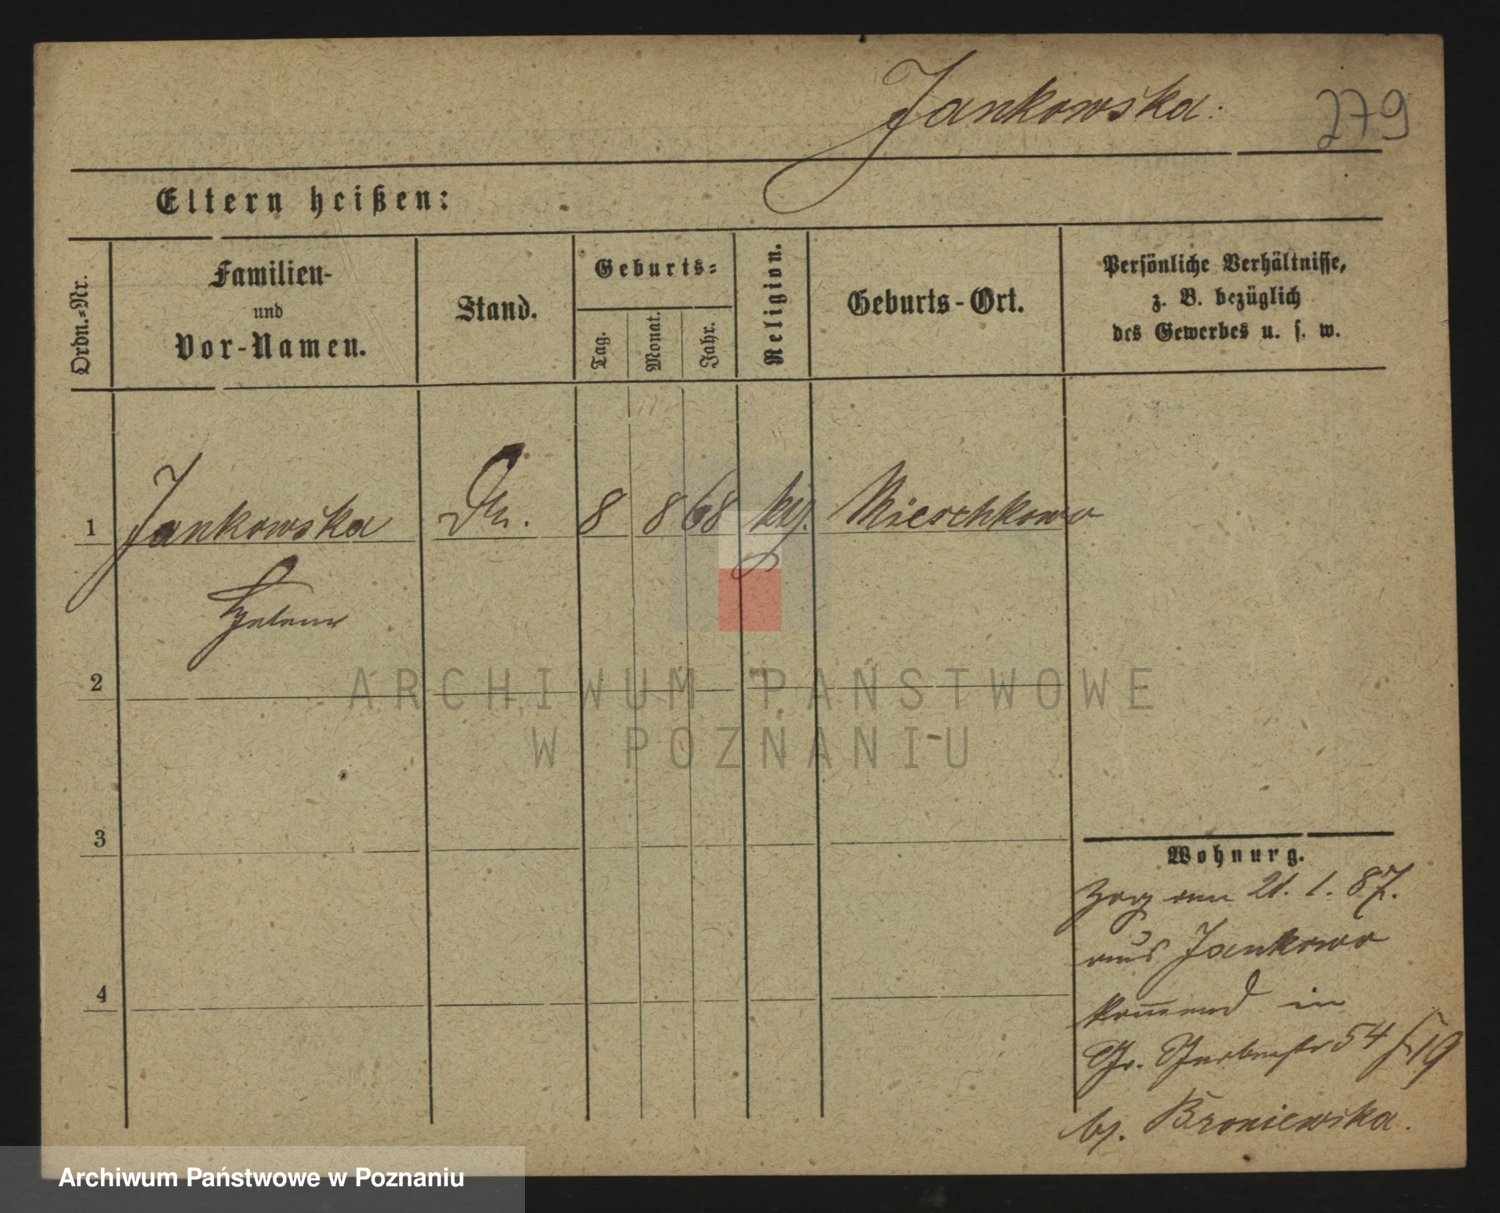 Jankowska.
279
Eltern heißen:
Ordn.-Nr.
Familien-
und
Vor-Namen.
Stand.
Geburts-
Tag.
Monat.
Jahr.
Religion.
Geburts-Ort.
Persönliche Verhältnisse,
z. B. bezüglich
des Gewerbes u. s. w.
1 Jankowska 8 8 68 Mieschkowo
Helene
2
ARCHIWUM PAŃSTWOWE
W POZNANIU
3
4
Wohnung.
Zog am 21. 1. 87.
aus Jankowo
kom̅end in
Gr. Gerberstr 54
bj. Broniewska.
Archiwum Państwowe w Poznaniu